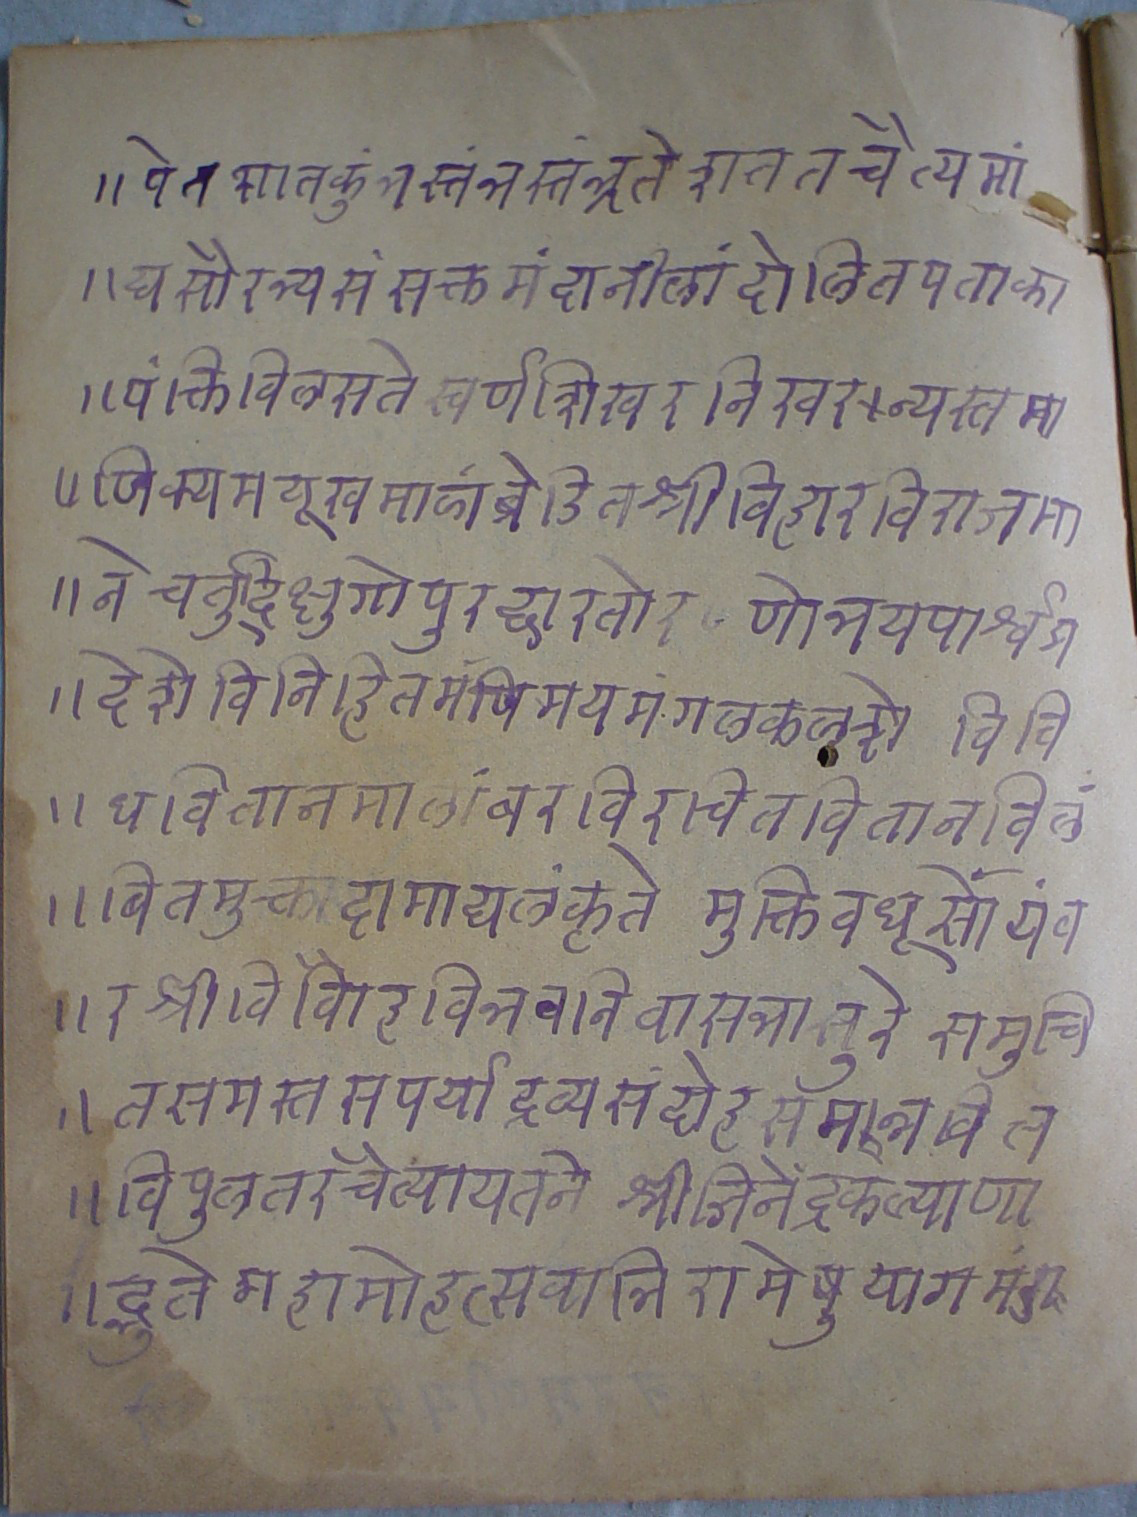 ॥पेत शातकुंभस्तंभस्तंभ्रते शततचैत्यमां
॥घसौरभ्यसंसक्तमंदानीलांदोलितपताका
॥पंक्तिविलसते स्वर्णशिखरनिखरन्यस्तमा
॥णिक्यमयूखमालांब्रेडितश्रीविहारविराजमा
॥ने चतुर्दिक्षुगोपुरद्वारतोर णोभयपार्श्वग
॥देशे विनिहितमंणिमयमंगलकलशे विवि
॥धवितानमालांबरविरचितवितानविलं
॥बितमुक्तादामाद्यलंकृते मुक्तिवधूसोंयंव
॥रश्रीविवोहविभवनिवासभासुरे समुचि
॥तसमस्तसपर्याद्रव्यसंदोहसमाभविल
॥विपुलतरचैत्यायतने श्रीजिनेंद्रकल्याणा
॥द्भुते महामोहत्सवाभिरामेषु यागमंड